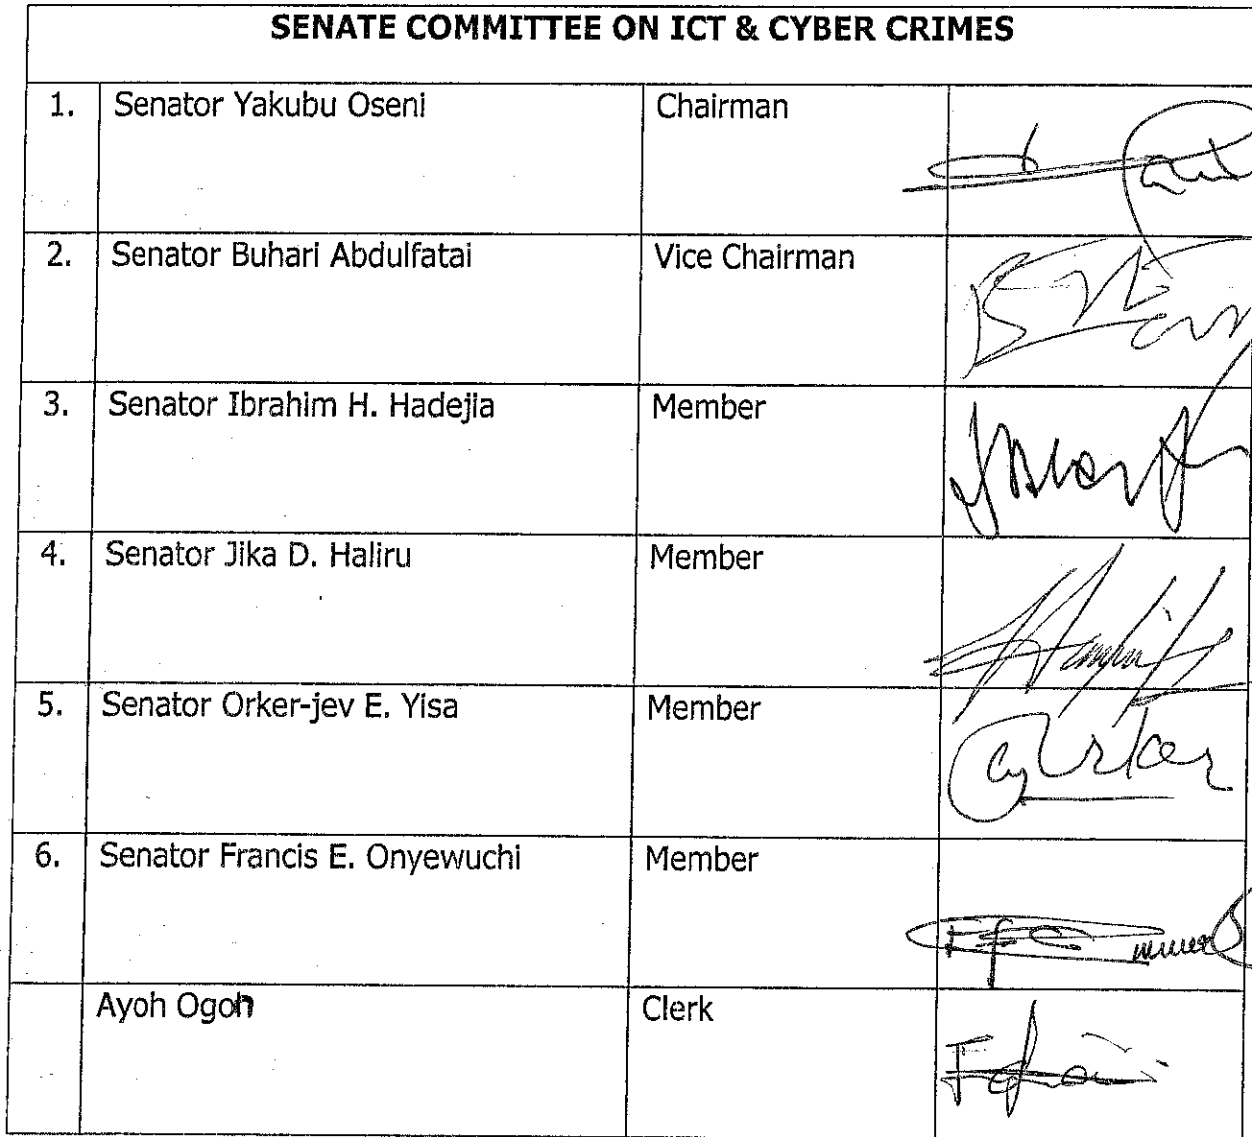 SENATE COMMITTEE ON ICT & CYBER CRIMES
1. Senator Yakubu Oseni Chairman
2. Senator Buhari Abdulfatai Vice Chairman
3. Senator Ibrahim H. Hadejia Member
4. Senator Jika D. Haliru Member
5. Senator Orker-jev E. Yisa Member
6. Senator Francis E. Onyewuchi Member
Ayoh Ogoh Clerk